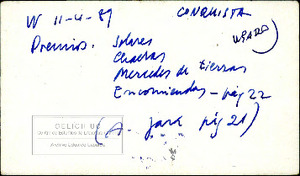 W 11-4-89 CONQUISTA
USADO
Premios. Solares
Chacras
Mercedes de tierras
Encomiendas - pág 22
(A. Jara pág 21)
DELICH UC